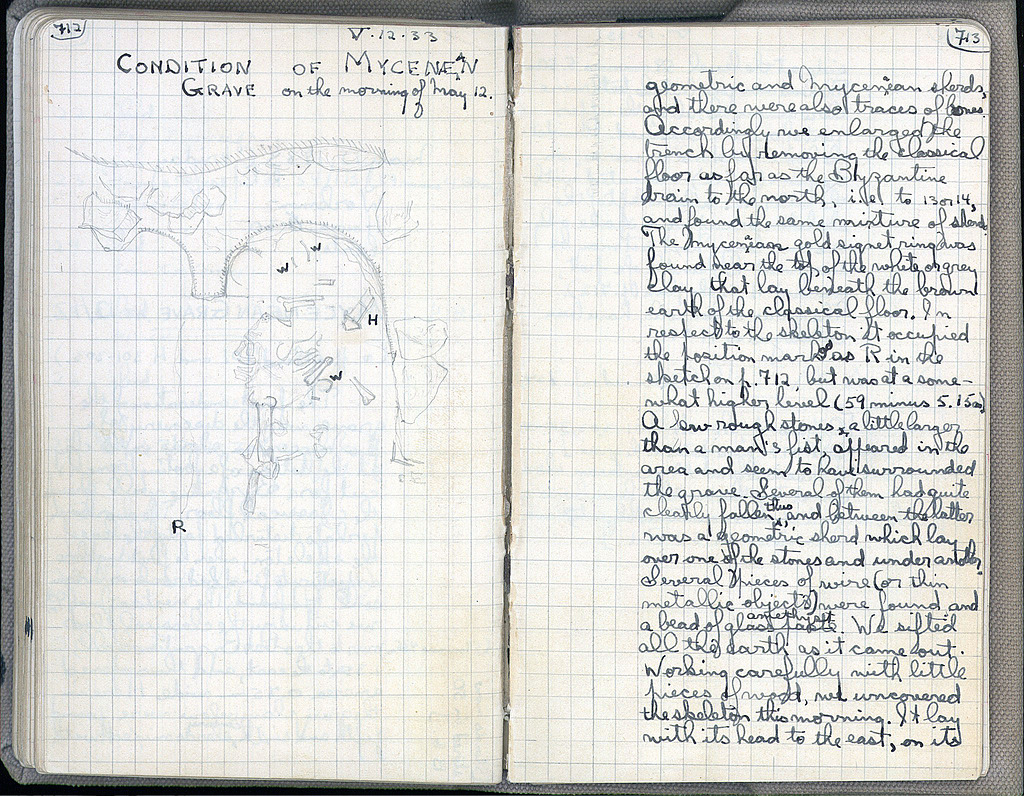 712
V.12.33
CONDITION OF MYCENÆAN
GRAVE on the morning of May 12.
W
W
H
W
R
713
geometric and Mycenæan sherds,
and there were also traces of bones.
Accordingly we enlarged the
trench by removing the classical
floor as far as the Byzantine
drain to the north, i.e. to 13 or 14,
and found the same mixture of sherds.
The Mycenæan gold signet ring was
found near the top of the white or grey
clay that lay beneath the brown
earth of the classical floor. In
respect to the skeleton it occupied
the position marked as R in the
sketch on p. 712, but was at a some-
what higher level (59 minus 5.15m)
A few rough stones, a little larger
than a man's fist, appeared in the
area and seem to have surrounded
the grave. Several of them had quite
clearly fallen thus, and between the latter
was a geometric sherd which lay
over one of the stones and under another.
Several pieces of wire (or thin
metallic objects) were found and
a bead of glass paste amethyst. We sifted
all the earth as it came out.
Working carefully with little
pieces of wood, we uncovered
the skeleton this morning. It lay
with its head to the east, on its